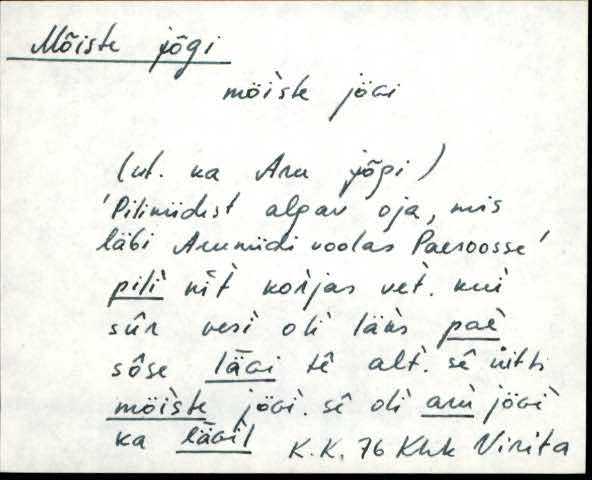 Mõiste jõgi
möìste jöGi
(vt. ka Aru jõgi)
'Piliniidust algav oja, mis
läbi Aruniidi voolas Paesoosse'
pilì nît korjas vet. kui
sûr vesì olì läks paè
sôse läGi tê alt. sê ütti
möìste jöGì. sê olì arù jöGì
ka läGìl K.K. 76 Khk Virita